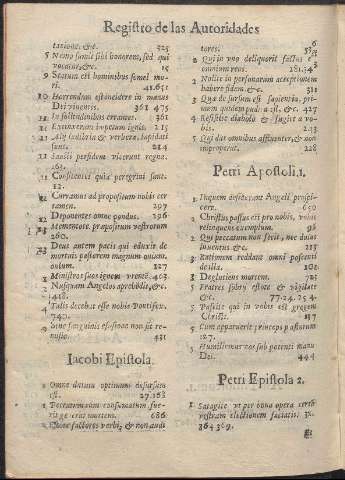 Registro de las Autoridades
tatione, &c. 525
5 Nemo sumit sibi honorem, sed qui
vocatur, &c. 15
9 Statutum est hominibus semel mori.
41.651
10 Horrendum est incidere in manus
Dei viventis. 361 475
11 In solitudinibus errantes. 361
11 Extinxerunt impetum ignis. 215
11 Alij ludibria & verbera, lapidati
sunt. 214
11 Sancti per fidem vicerunt regna.
11 Confitentes quia peregrini sunt.
12.
12 Curramus ad propositum nobis certamen
297
12 Deponentes omne pondus. 296
13 Mementote præpositorum vestrorum
260.
13 Deus autem pacis qui eduxit de
mortuis pastorem magnum ovium.
127
1 Ministros suos ignem urentē. 463
2 Nusquam Angelos aprehēdit, &c.
418.
7 Talis decebat esse nobis Pontifex.
740.
9 Sine sanguinis efusione non fit remissio.
431
Iacobi Epistola.
1 Omne datum optimum desursum
est. 27.168
1 Peccatum cum consumatum fuerit
generat mortem. 686
1 Estote factores verbi, & non audi
tores.
2 Qui in uno deliquerit factus est
omnium reus.
2 Nolite in personarum acceptionem
habere fidem, &c. 311
3 Quæ de sursum est sapientia, primum
quidem pudica est, &c. 427
4 Resistite diabolo & fugiet a vobis.
233
5 Qui dat omnibus affluenter, & non
improperat. 228
Petri Apostoli.1.
1 In quem desiderant Angeli prospicere.
650
2 Christus passus est pro nobis, vobis
relinquens exemplum. 96
2 Qui peccatum non fecit, nec dolus
inventus &c. 215
3 Rationem reddant omni poscenti
de illa. 101
3 Deglutiens mortem. 785
5 Fratres sobrij estote & vigilate
&c. 77.24.254.
5 Pascite qui in vobis est gregem
Christi. 117
5 Cum apparuerit princeps pastorum
127.
5 Humiliamini sub potenti manu
Dei. 444
Petri Epistola 2.
1 Satagite ut per bona opera certā
vestram electionem faciatis. 32.
364 369.